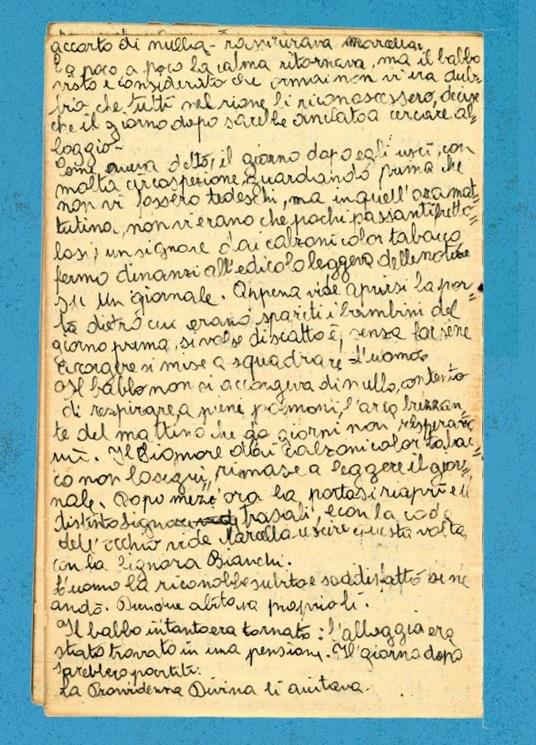 accorto di nulla - rassicurava Marcella.
E a poco, a poco la calma ritornava, ma il babbo
visto e considerato che ormai non vi era dub=
bio che tutti nel rione li riconoscessero, decise
che il giorno dopo sarebbe andato a cercare al=
loggio -
Come aveva detto, il giorno dopo egli uscì, con
molta circospezione, guardando prima che
non vi fossero tedeschi, ma in quell'ora mat=
tutina, non vi erano che pochi passanti fretto=
losi; un signore dai calzoni color tabacco
fermo dinanzi all'edicola leggeva delle notizie
su un giornale. Appena vide aprirsi la por=
ta dietro cui erano spariti i bambini del
giorno prima, si volse di scatto e, senza farsene
accorgere si mise a squadrare l'uomo.
Il babbo non si accorgeva di nulla, contento
di respirare a pieni polmoni, l'aria frizzan=
te del mattino che da giorni non respirava
più. Il Signore dai calzoni color tabac=
co non lo seguì, rimase a leggere il gior=
nale. Dopo mezz'ora la porta si riaprì e il
distinto signore trasalì, e con la coda
dell'occhio vide Marcella uscire questa volta,
con la Signora Bianchi.
L'uomo la riconobbe subito e soddisfatto se ne
andò. Dunque abitava proprio lì.
Il babbo intanto era tornato: l'alloggio era
stato trovato in una pensione. Il giorno dopo
sarebbero partiti.
La Provvidenza Divina li aiutava.